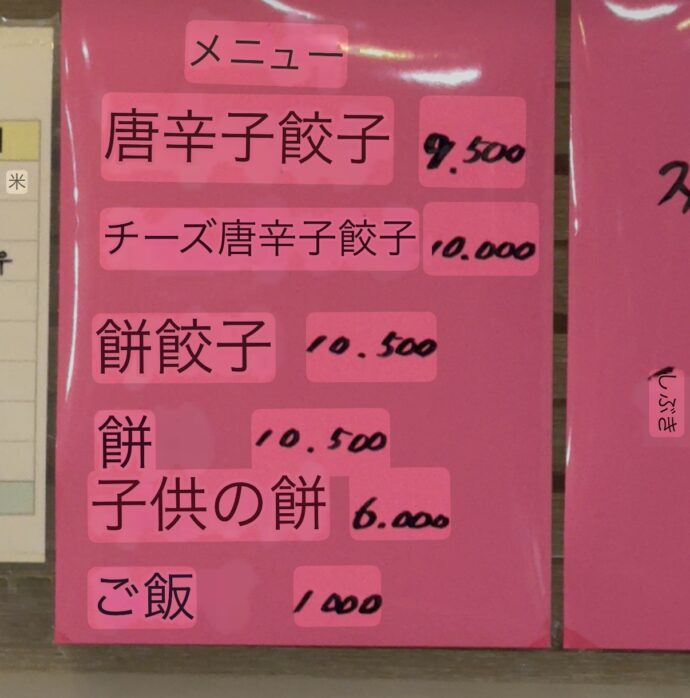 メニュー
唐辛子餃子 9.500
チーズ唐辛子餃子 10.000
餅餃子 10.500
餅 10.500
子供の餅 6.000
ご飯 1000
米
しぶき